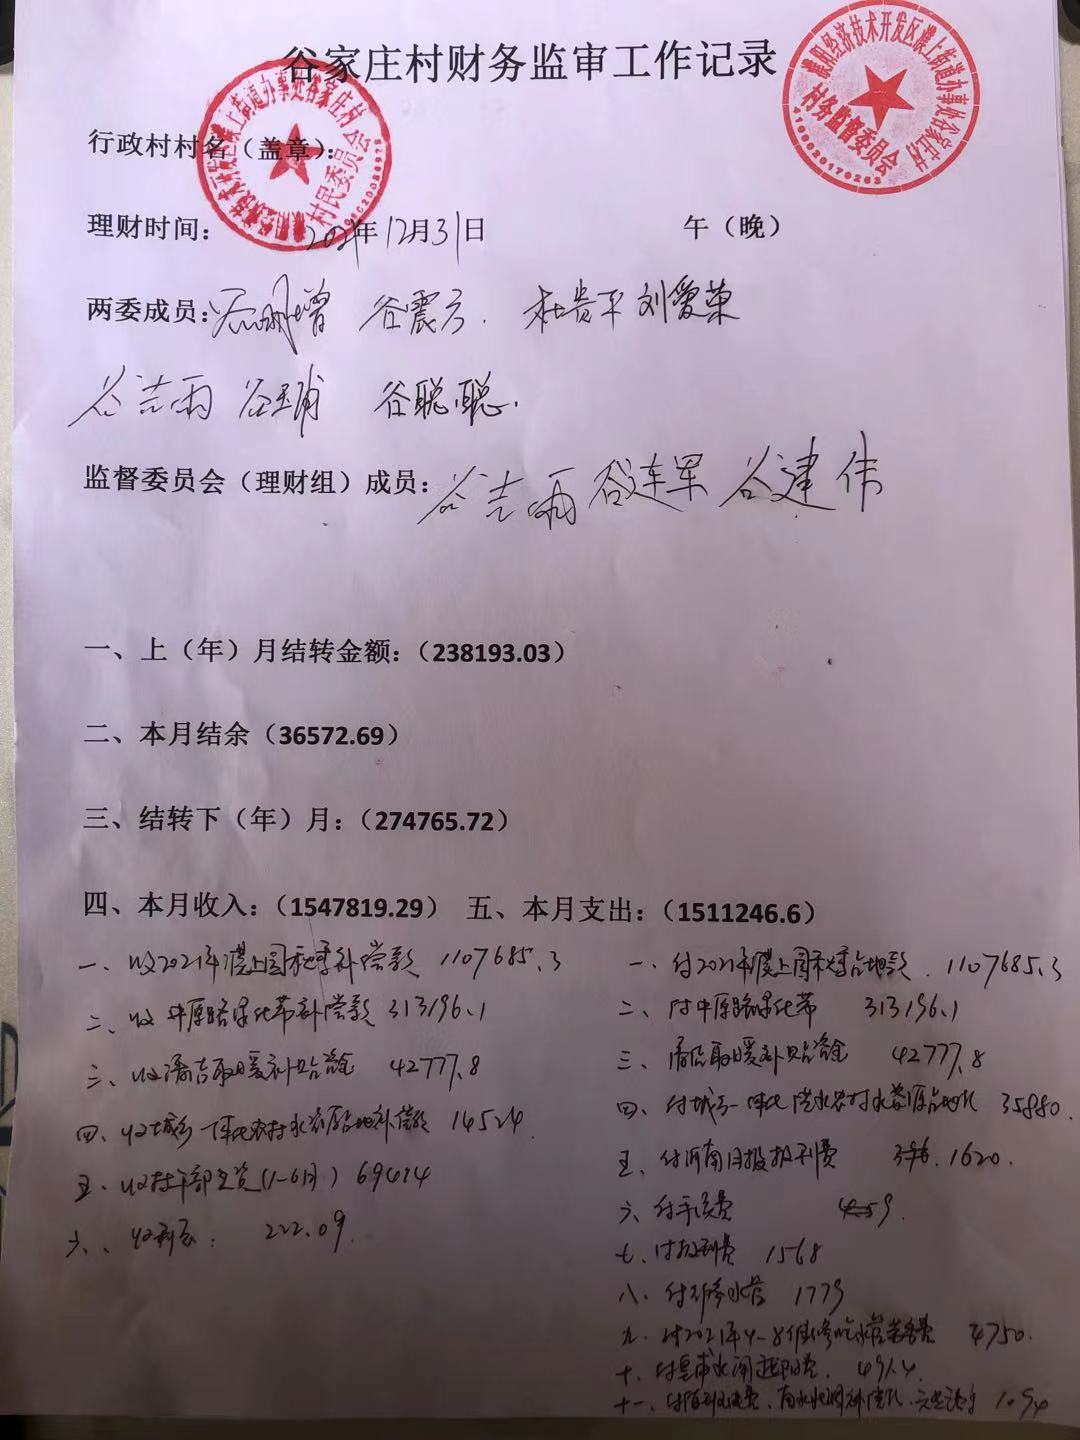 谷家庄村财务监审工作记录
濮阳经济技术开发区濮上街道办事处谷家庄村
村务监督委员会
村民委员会
行政村村名（盖章）：
理财时间： 2021年12月31日 午（晚）
两委成员： 谷震方 杜贵平 刘爱荣
谷吉雨 谷聪聪
监督委员会（理财组）成员：谷吉雨 谷连军 谷建伟
一、上（年）月结转金额：（238193.03）
二、本月结余（36572.69）
三、结转下（年）月：（274765.72）
四、本月收入：（1547819.29） 五、本月支出：（1511246.6）
一、收2021年濮上园秋季补偿款 1107685.3
一、付2021年濮上园秋季占地款 1107685.3
二、收中原路绿化带补偿款 313196.1
二、付中原路绿化带 313196.1
三、收清洁取暖补贴资金 42777.8
三、清洁取暖补贴资金 42777.8
四、收城乡一体化农村水厂占地补偿款 14524
四、付城乡一体化供水农村水 35880
五、收村干部工资（1-6月）69414
五、付河南日报报刊费 1620
六、收利息： 222.09
六、付手续费 459
七、付报刊费 1568
八、付维修水管 1779
九、付2021年4-8 4750
十、付 4914
十一、付 1094